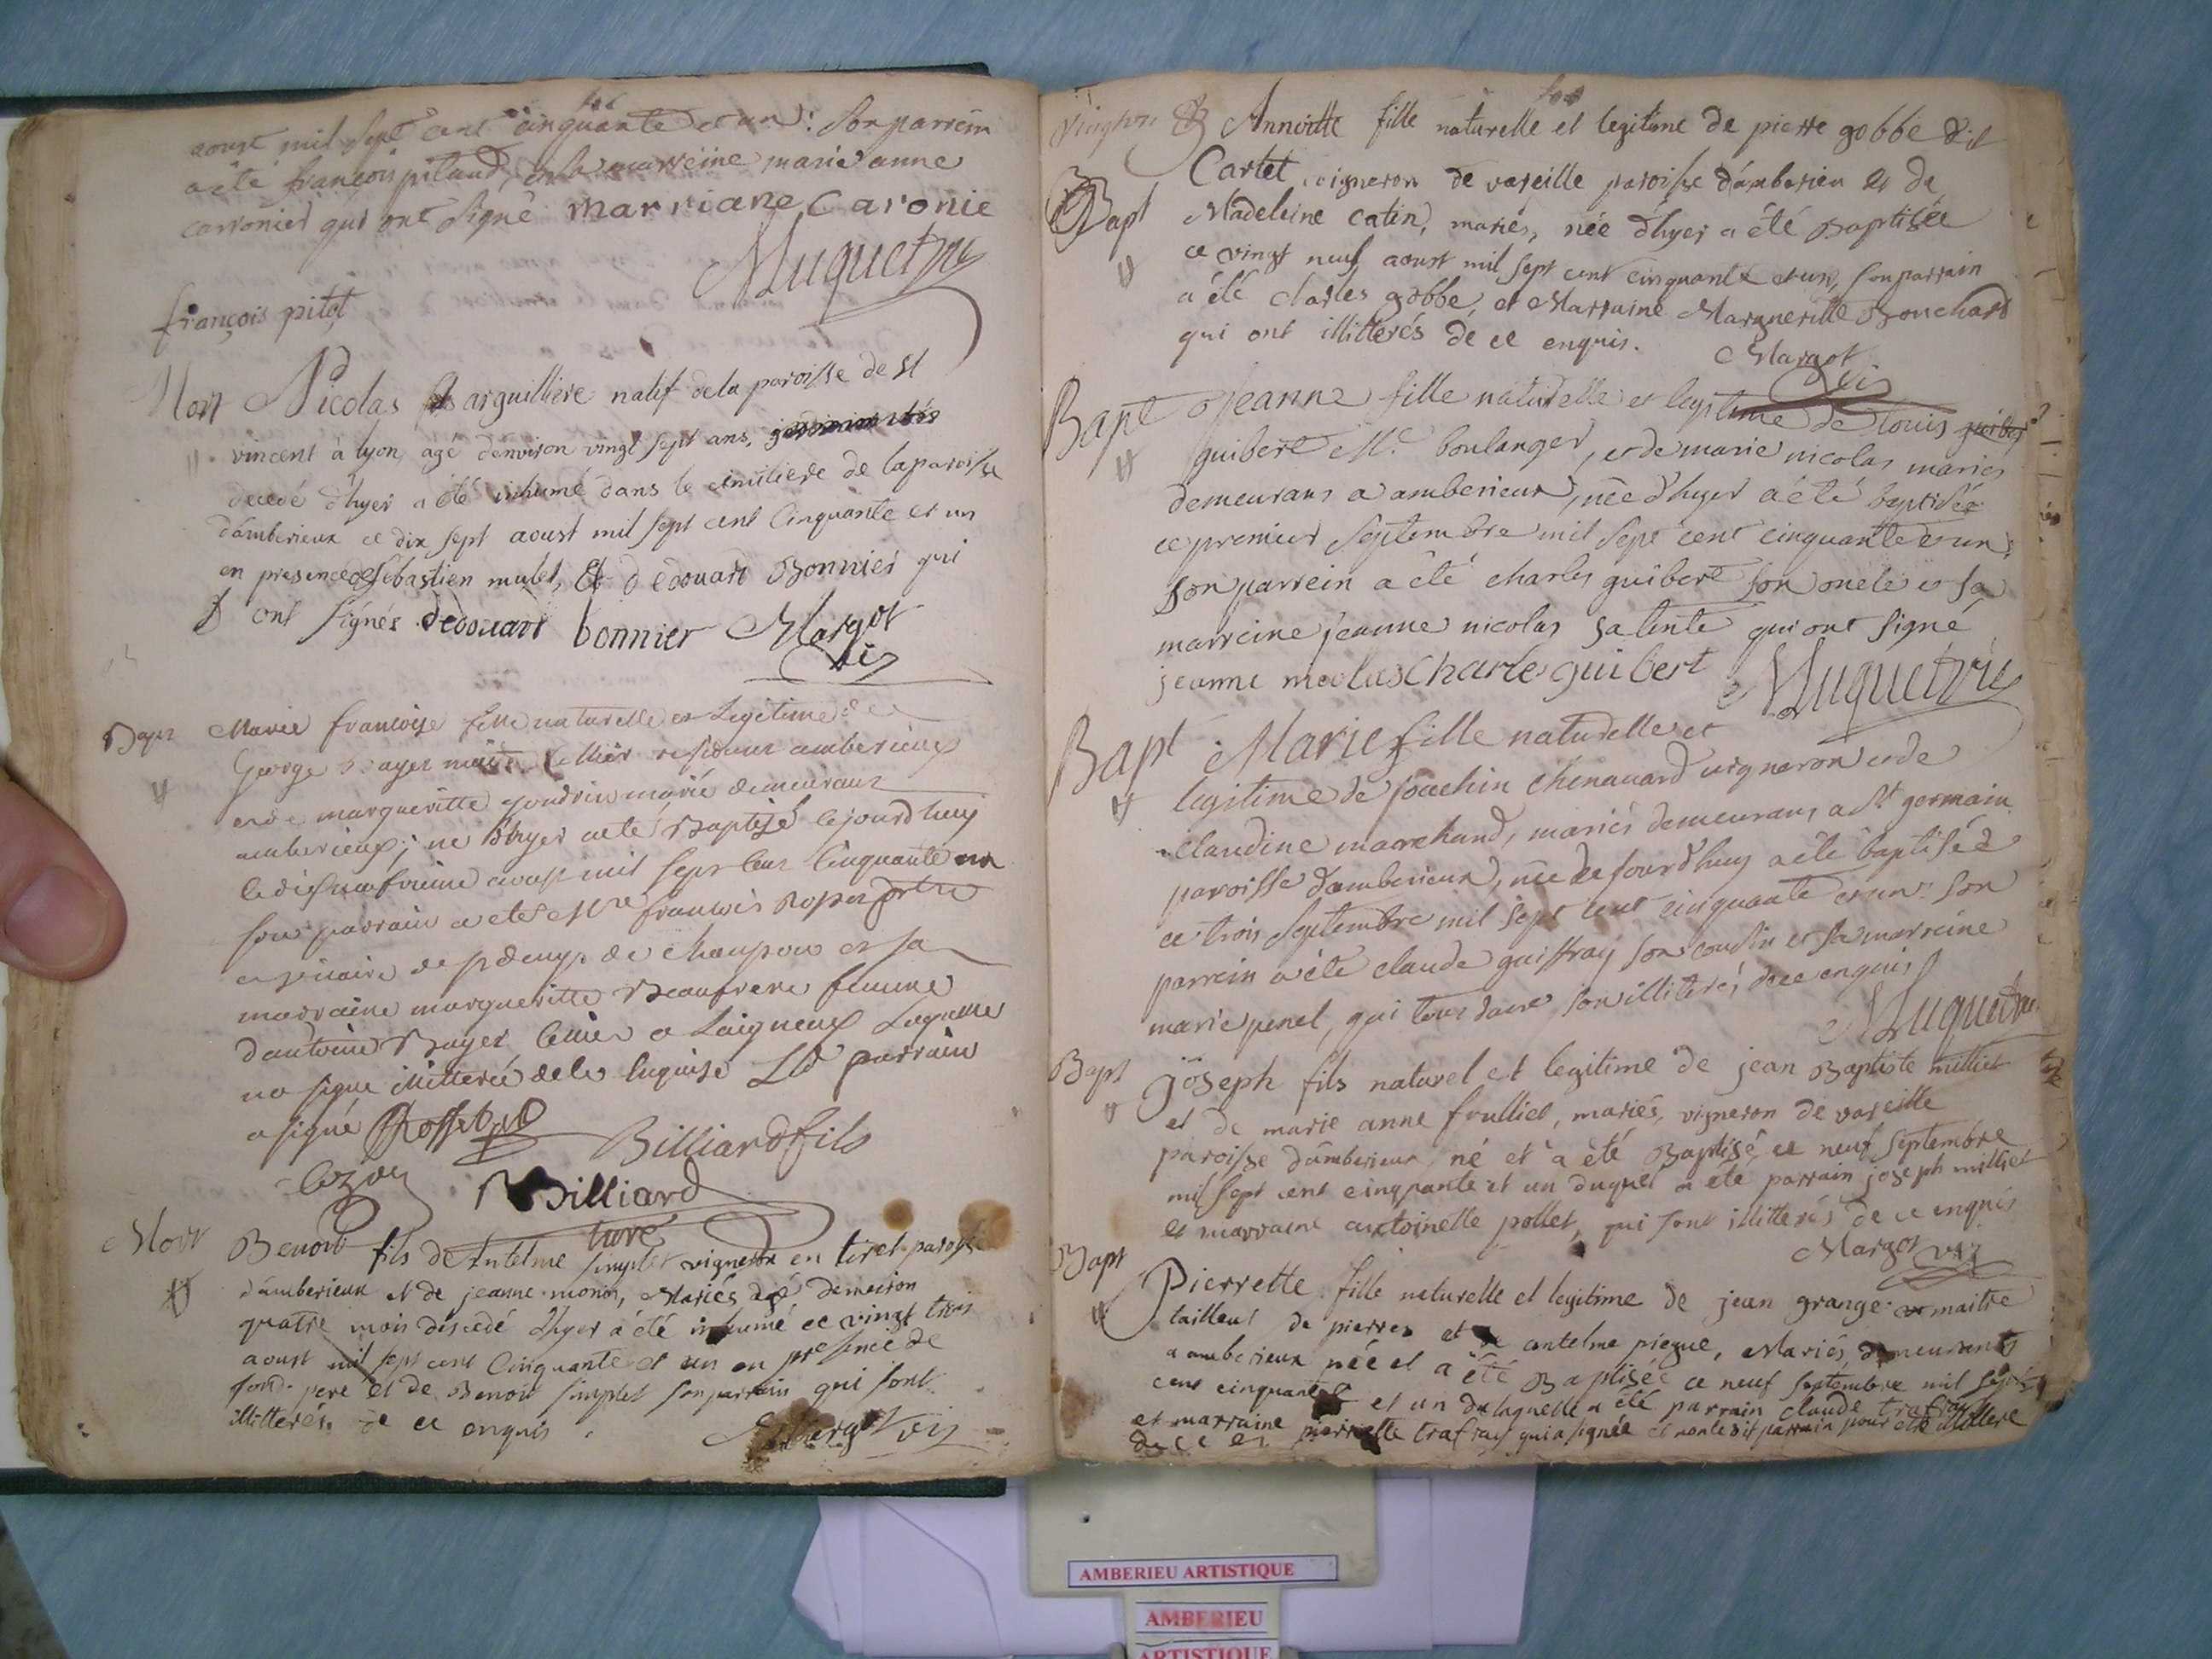 aoust mil sept cent cinquante et un: son parrein
a été françois pitaud, et la marreine marie anne
carronier qui ont signé marriane Caronie
Muguet vre
françois pitot
Mort Nicolas arguilliere natif de la paroisse de st
vincent à lyon, agé denviron vingt sept ans,
decedé d'hyer a été inhumé dans le cimitiere de la paroisse
dámberieux ce dix sept aoust mil sept cent Cinquante et un
en presence de Sébastien mulet, Et d'edouart Bonnier qui
ont signés dedouart bonnier Margot
vic
Bapt Marie francoise fille naturelle et Legitime de
George Bayer residant amberieux
et de margueritte marié demeurant
amberieux; né d'hyer a eté Baptisé cejourdhuy
le dix neufvieme aoust mil sept cent Cinquante un
son parrain a eté Mre francois Roset prtre
et vicaire de de Chaupon et sa
marraine margueritte Beaufrere femme
dantoine Bayer a Laigneux Laquelle
na signé illitterée de ce enquise Led parrain
a signé Rosset Billiard fils
Billiard
curé
Mort Benoit fils de Antelme simplet vigneron en tiret paroisse
dámberieux et de jeanne monin, Mariés agé denviron
quatre mois décedé d'hyer a été inhumé ce vingt trois
aoust mil sept cent Cinquante et un en presence de
sond. pere et de Benoit simplet son parrain qui sont
illitterés de ce enquis. Margot vic
Annoitte fille naturelle et legitime de pierre gobbe dit
Cartet vigneron de vareille paroisse dámberieu et de
Bapt Madeleine catin, mariés, née d'hyer a été Baptisée
ce vingt neuf aoust mil sept cent cinquante et un, son parrain
a été charles gobbe, et Marraine Margueritte Bouchard
qui ont illitterés de ce enquis. Margot
vic
Bapt Jeanne fille naturelle et legitime de louis
guibert Me. boulanger, et de marie nicolas mariés
demeurans a amberieux, née d'hyer a été baptisée
ce premier Septembre mil sept cent cinquante et un:
son parrein a été charles guibert son oncle et sa
marreine jeanne nicolas sa tente qui ont signé
jeanne nicolas Charle guibert Muguet vre
Bapt Marie fille naturelle et
legitime de joachin chenavard vigneron et de
claudine marchand, mariés demeurans a St germain
paroisse damberieux, née de jourd'huy a été baptisée
ce trois Septembre mil sept cent cinquante et un: son
parrein a été claude guiffray son cousin et sa marreine
marie penet, qui tous deux son illiterés de ce enquis
Muguet vre
Bapt joseph fils naturel et legitime de jean Baptiste milliet
et de marie anne frulliet, mariés, vigneron de vareille
paroisse dámberieux, né et a été Baptisé ce neuf septembre
mil sept cent cinquante et un duquel a été parrain joseph milliet
et marraine antoinette pollet, qui sont illitterés de ce enquis
Margot vic
Bapt Pierrette fille naturelle et legitime de jean grange maitre
tailleur de pierres et de antelme piegue, Mariés, demeurants
a amberieux née et a été Baptisée ce neuf septembre mil sept
cent cinquante et un de laquelle a été parrain claude trafray
et marraine pierrette trafray qui a signée et non ledit parrain pour etre illittere
de ce en
AMBERIEU ARTISTIQUE
AMBERIEU
ARTISTIQUE